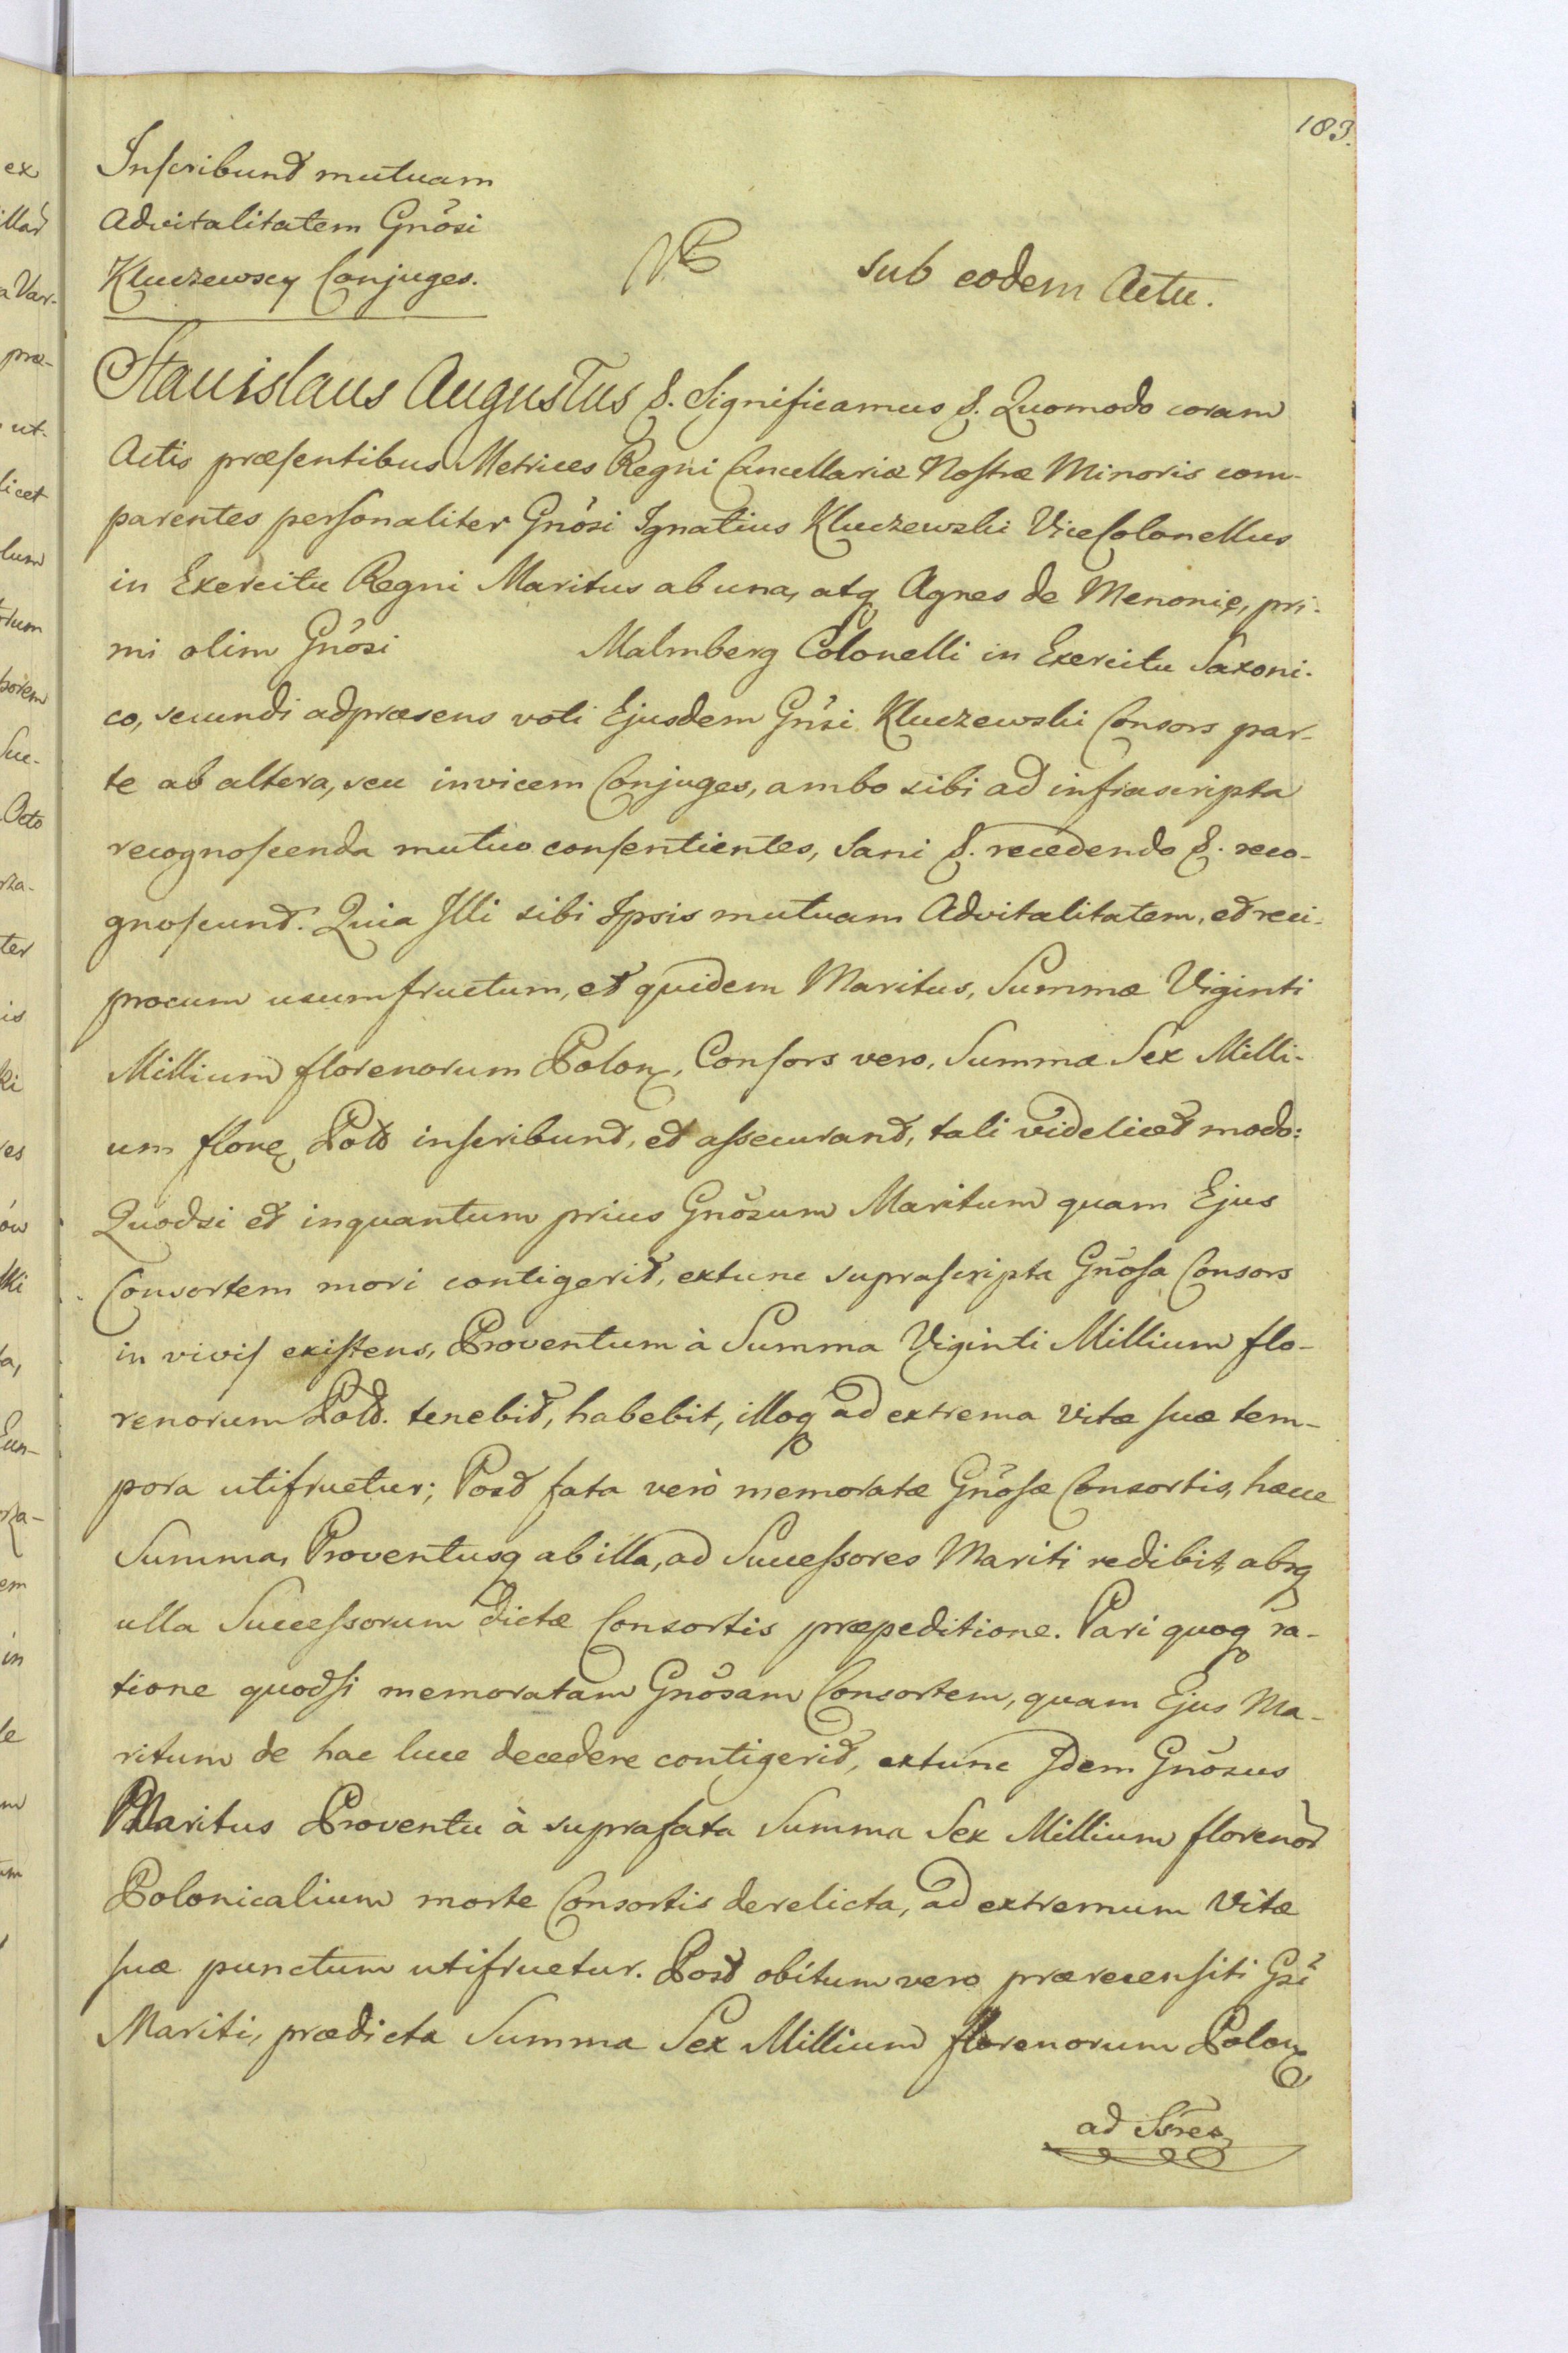 183.
Inscribunt mutuam
Advitalitatem Gnõsi
Kluczewscy Conjuges.
sub eodem Actu.
Stanislaus Augustus &. Significamus &. Quomodo coram
Actis præsentibus Metrices Regni Cancellariæ Nostræ Minoris com-
parentes personaliter Gnõsi Ignatius Kluczewski ViceColonellus
in Exercitu Regni Maritus ab una, atq Agnes de Menonie, pri-
mi olim Gnõsi Malmberg Colonelli in Exercitu Saxoni-
co, secundi adpræsens voti Ejusdem Gnsi Kluczewski Consors par-
te ab altera, seu invicem Conjuges, ambo sibi ad infrascripta
recognoscenda mutuo consentientes, Sani &. recedendo &. reco-
gnoscunt. Quia Illi sibi Ipsis mutuam Advitalitatem, et reci-
procum usumfructum, et quidem Maritus, Summæ Viginti
Millium florenorum Polon, Consors vero, Summæ Sex Milli-
um flore Pold inscribunt, et assecurant, tali videlicet modo:
Quodsi et inquantum prius Gnõsum Maritum quam Ejus
Consortem mori contigerit, extunc suprascripta Gnõsa Consors
in vivis existens, Proventum à Summa Viginti Millium flo-
renorum Pold. tenebit, habebit, illoq ad extrema vitæ suæ tem-
pora utifruetur; Post fata verò memoratæ Gnõsæ Consortis, hæcce
Summa, Proventusq ab illa, ad Successores Mariti redibit, absq
ulla Successorum dictæ Consortis præpeditione. Pari quoq ra-
tione quodsi memoratam Gnõsam Consortem, quam Ejus Ma-
ritum de hac luce decedere contigerit, extunc Idem Gnõsus
Maritus Proventu à suprafata Summa Sex Millium florenor
Polonicalium morte Consortis derelicta, ad extremum vitæ
suæ punctum utifruetur. Post obitum vero prærecensiti Gsi
Mariti, prædicta Summa Sex Millium florenorum Polon
ad Ssres